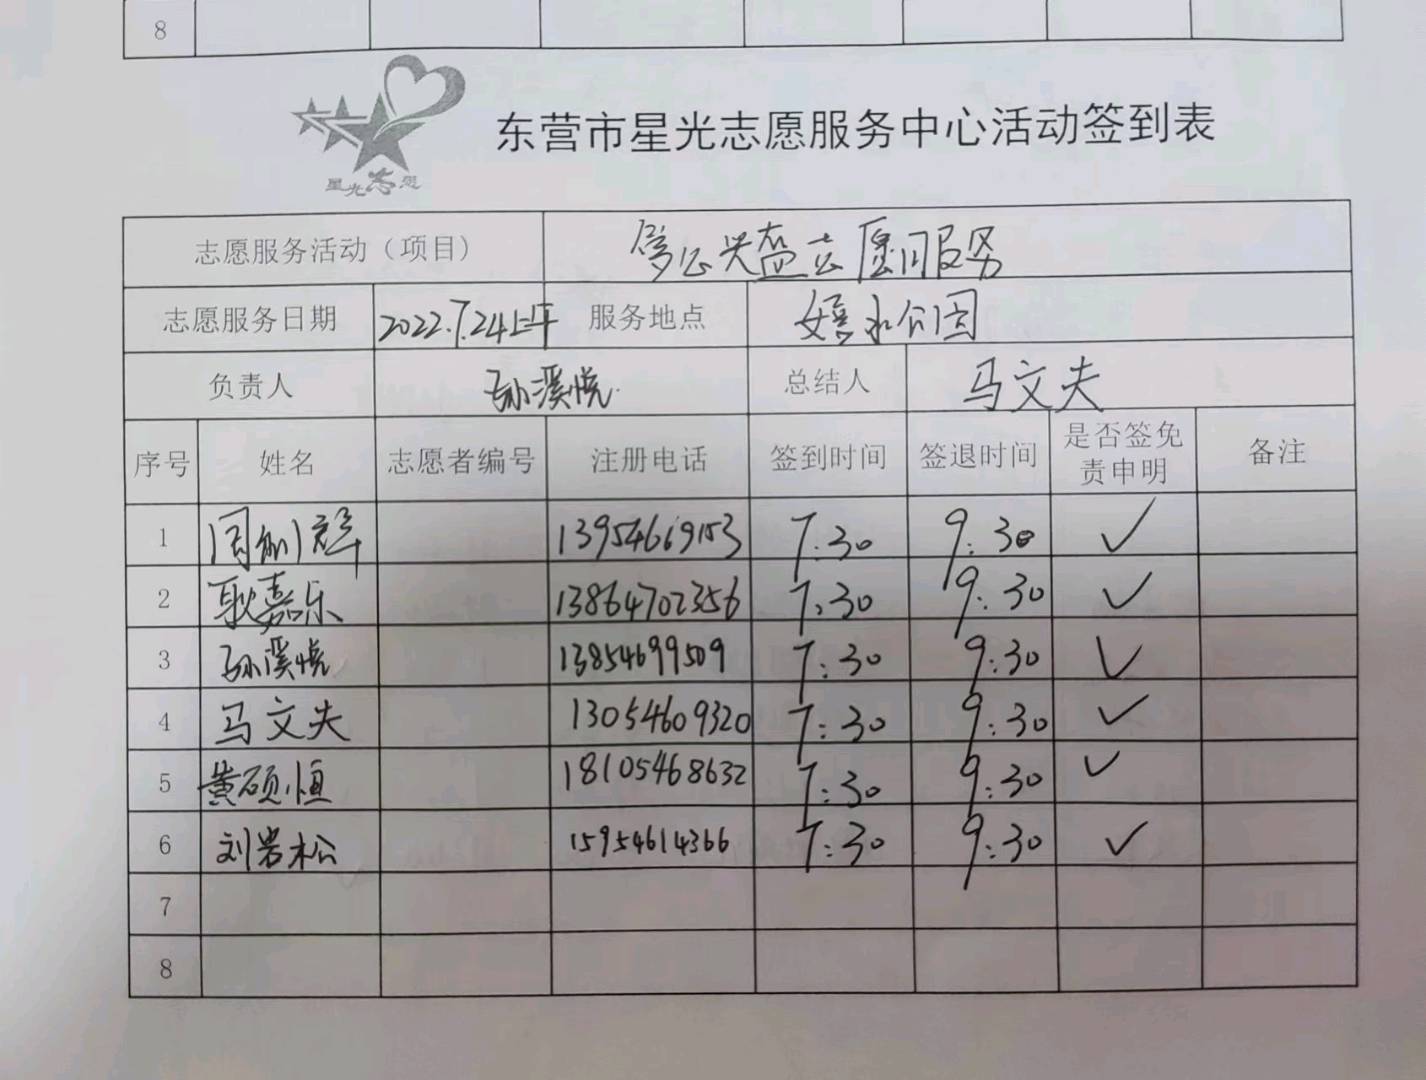 8
星光志愿
东营市星光志愿服务中心活动签到表
志愿服务活动（项目） 公益志愿服务
志愿服务日期 2022.7.24上午 服务地点 嬉水公园
负责人 孙溪悦 总结人 马文夫
序号 姓名 志愿者编号 注册电话 签到时间 签退时间 是否签免责申明 备注
1 13954669153 7:30 9:30 ✓
2 耿嘉乐 13864702356 7:30 9:30 ✓
3 孙溪悦 13854699509 7:30 9:30 ✓
4 马文夫 13054609320 7:30 9:30 ✓
5 黄硕恒 18105468632 7:30 9:30 ✓
6 刘岩松 15954614366 7:30 9:30 ✓
7
8